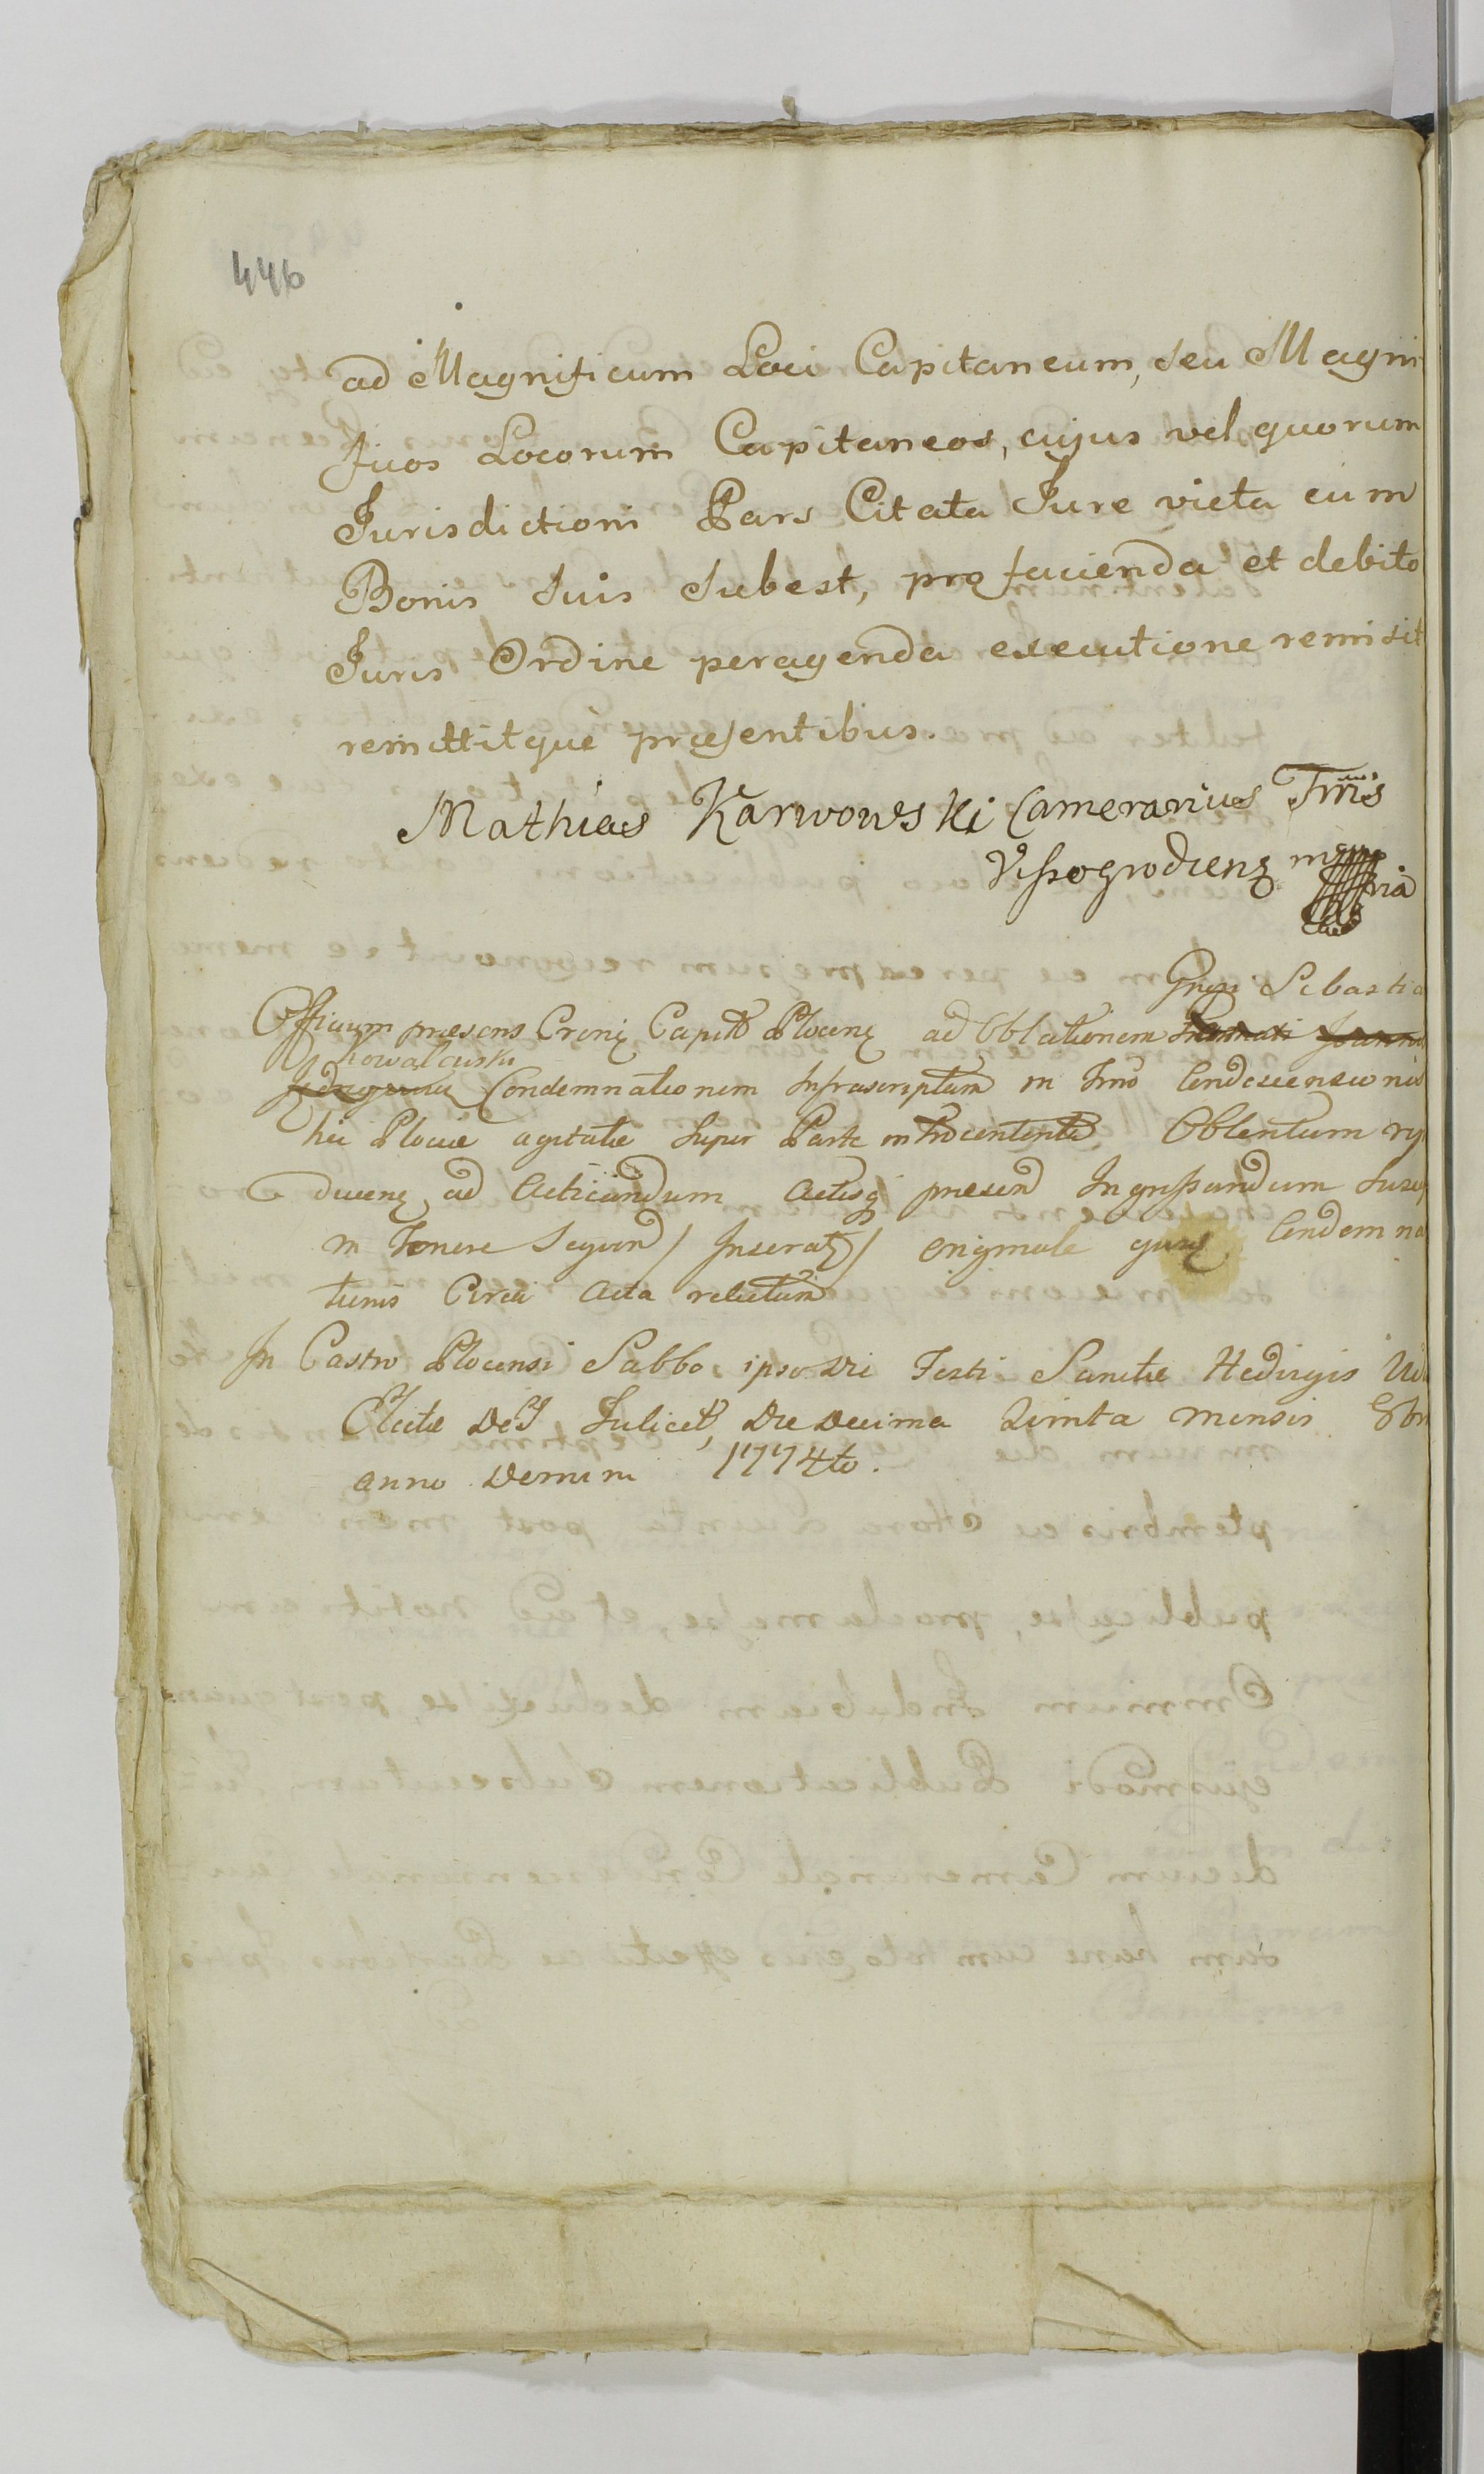 446
ad Magnificum Loci Capitaneum, seu Magni
ficos Locorum Capitaneos, cujus vel quorum
Jurisdictioni Pars Citata Jure victa cum
Bonis suis subest, pro facienda et debito
Juris Ordine peragenda executione remisit
remittitque præsentibus.
Mathias Karwowski Camerarius Trrīs
Vissogrodienz mppria
Sebastia
Officium præsens Capit Plocenz ad Oblationem
Kowalewski
Condemnationem Infrascriptam in Condescensionis
hic Plociæ agitatæ super Parte Obtentum
ad Acticandum Actisq presen Ingrossandum Susce
in Tenore Sequen / Inseratz / originale Condemna
tionis Circa Acta relictum
In Castro Plocensi Sabbo ipso Die Festi Sanctæ Hedvigis
Electæ Scilicet, Die Decima Quinta mensis 8br
anno Domini 1774to.